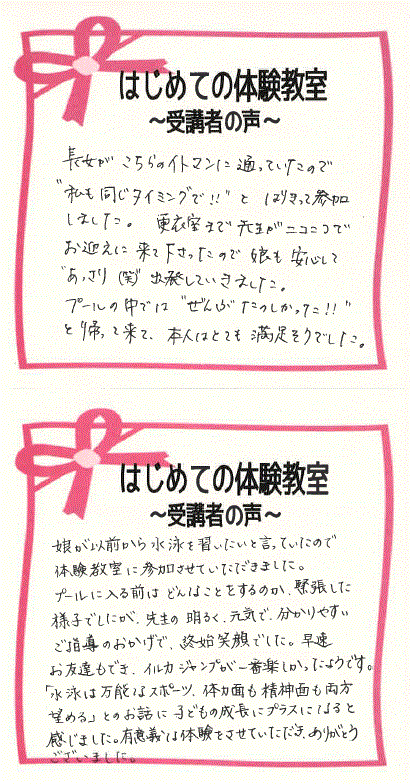 はじめての体験教室
～受講者の声～
長女が こちらのイトマンに 通っていたので
"私も同じタイミングで!!" と はりきって参加
しました。 更衣室まで 先生がニコニコで
お迎えに 来て下さったので 娘も 安心して
"あっさり (笑)" 出発していきました。
プールの中では "ぜんぶ たのしかった!!"
と帰って来て、本人はとても 満足そうでした。
はじめての体験教室
～受講者の声～
娘が以前から水泳を習いたいと言っていたので
体験教室に参加させていただきました。
プールに入る前は どんなことをするのか、緊張した
様子でしたが、先生の 明るく、元気で、分かりやすい
ご指導のおかげで、終始笑顔でした。早速
お友達もでき、イルカジャンプが一番楽しかったようです。
「水泳は万能なスポーツ、体力面も精神面も両方
望める」とのお話に 子どもの成長にプラスになると
感じました。有意義な体験をさせていただき、ありがとう
ございました。